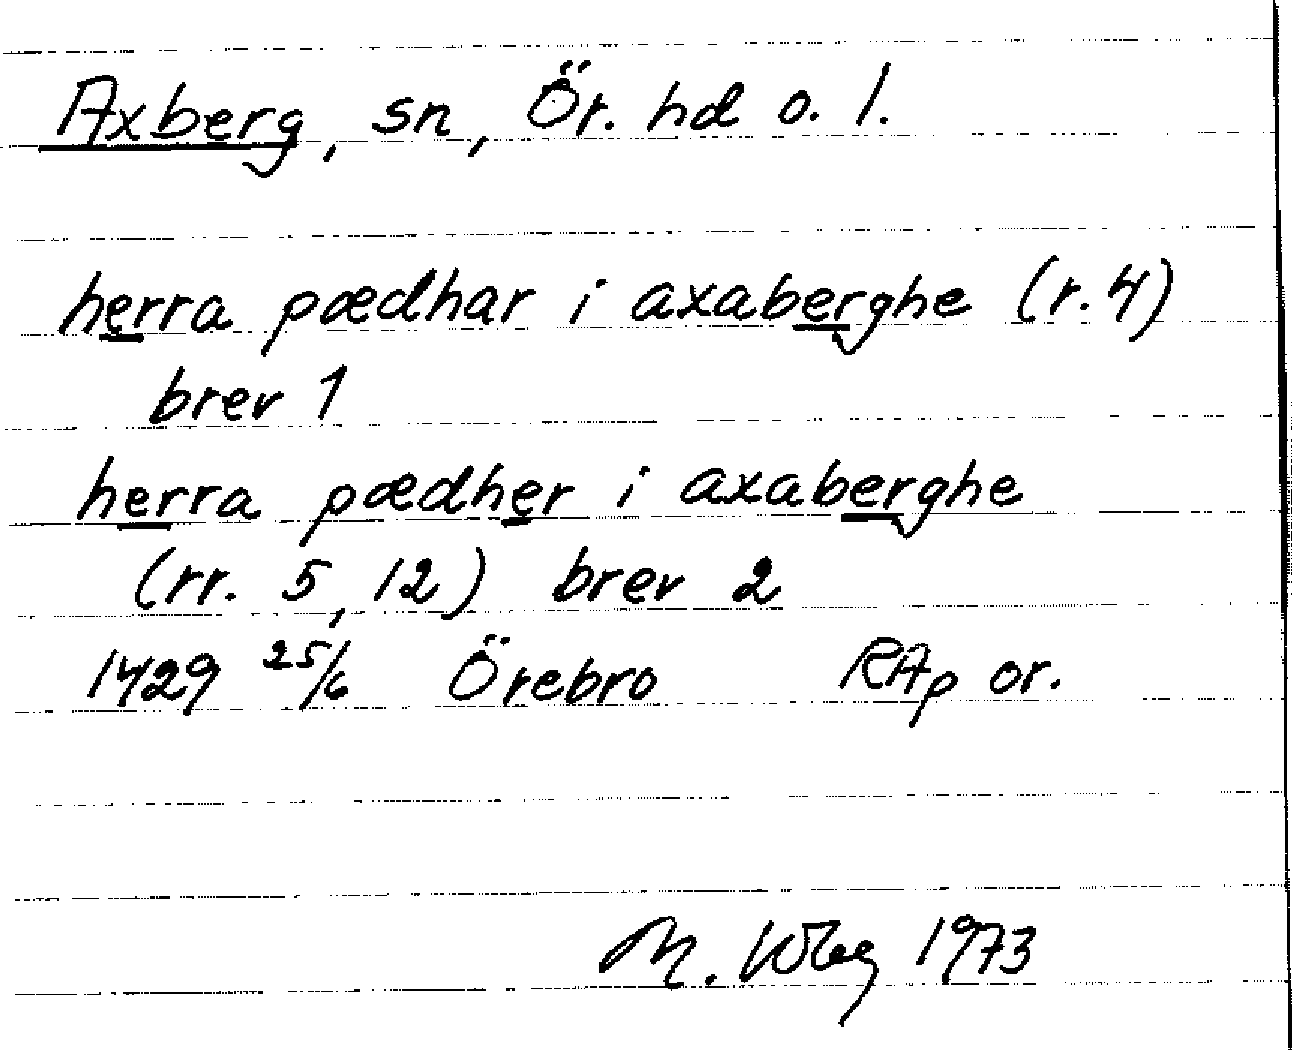 Axberg, sn, Ör. hd o. l.
herra pædhar i axaberghe (r. 4)
brev 1
herra pædher i axaberghe
(rr. 5, 12) brev 2
1429 25/6 Örebro RAp or.
M. Wbg 1973